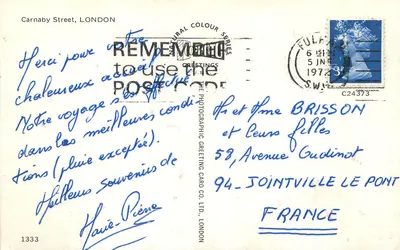 Carnaby Street, LONDON
Merci pour votre
chaleureux accueil.
Notre voyage s'effectue
dans les meilleures condi-
tions (pluie exceptée).
Meilleurs souvenirs de
Marie-Pierre
1333
NATURAL COLOUR SERIES
GREETINGS
THE PHOTOGRAPHIC GREETING CARD CO. LTD., LONDON
REMEMBER
to use the
POST CODE
FULHAM
5 JNE
1972
S.W.
C24373
Mr et Mme BRISSON
et leurs filles
59, Avenue Gudinot
94-JOINTVILLE LE PONT
FRANCE